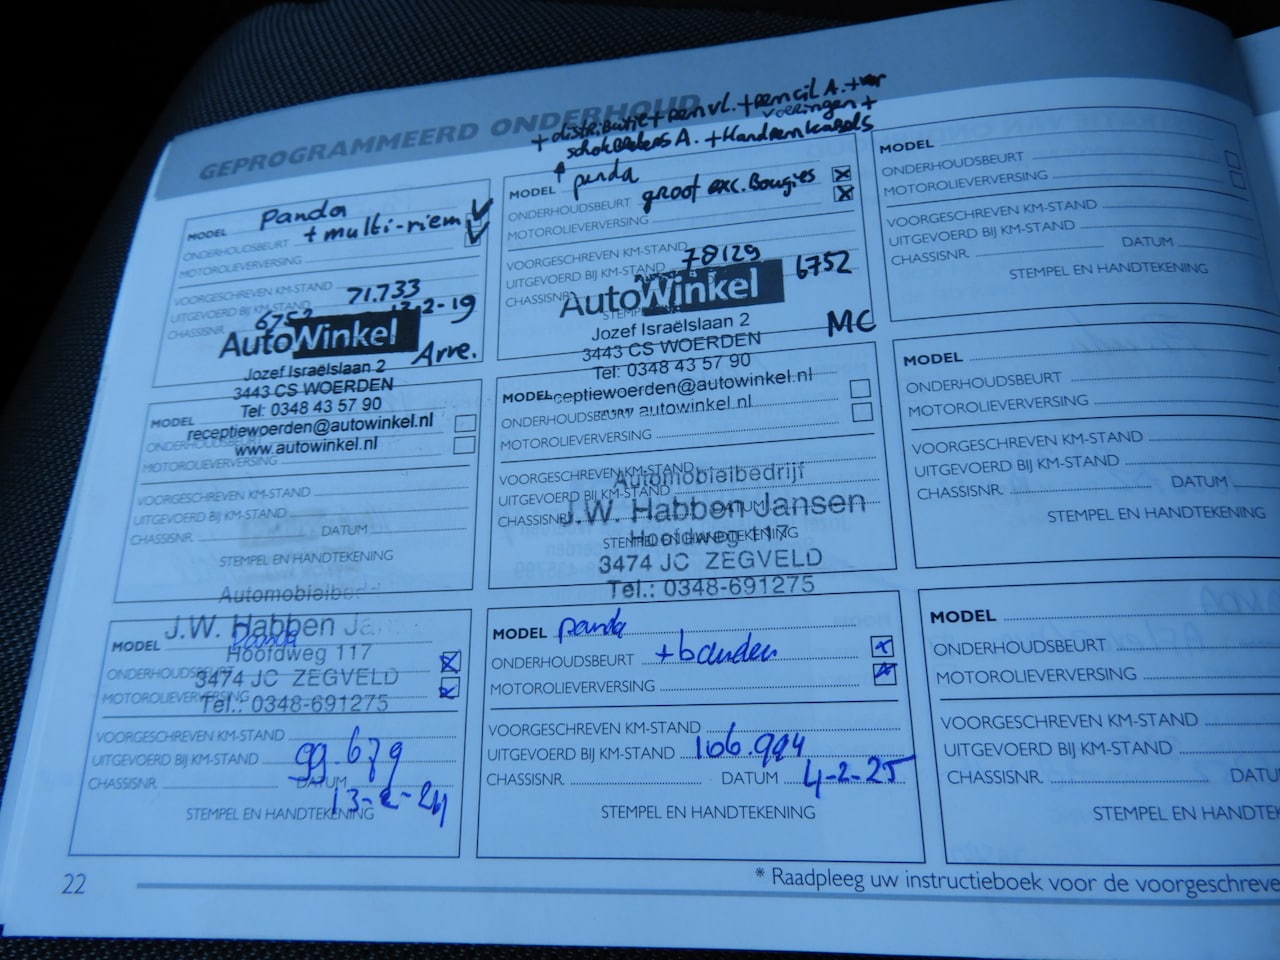 GEPROGRAMMEERD ONDERHOUD
MODEL Panda
ONDERHOUDSBEURT + multi-riem
MOTOROLIEVERVERSING
VOORGESCHREVEN KM-STAND
UITGEVOERD BIJ KM-STAND 71.733
CHASSISNR. 6752 -2-19
AutoWinkel Arre.
Jozef Israëlslaan 2
3443 CS WOERDEN
Tel: 0348 43 57 90
receptiewoerden@autowinkel.nl
www.autowinkel.nl
+ distributie + remvl. + remcil A. + voor
voeringen +
schokbrekers A. + Handremkabels
MODEL panda
ONDERHOUDSBEURT groot exc. Bougies
MOTOROLIEVERVERSING
VOORGESCHREVEN KM-STAND
UITGEVOERD BIJ KM-STAND 78129
CHASSISNR. 6752
AutoWinkel
Jozef Israëlslaan 2
3443 CS WOERDEN MC
Tel: 0348 43 57 90
ceptiewoerden@autowinkel.nl
autowinkel.nl
MODEL
ONDERHOUDSBEURT
MOTOROLIEVERVERSING
VOORGESCHREVEN KM-STAND
UITGEVOERD BIJ KM-STAND
CHASSISNR. DATUM
STEMPEL EN HANDTEKENING
MODEL
ONDERHOUDSBEURT
MOTOROLIEVERVERSING
VOORGESCHREVEN KM-STAND
UITGEVOERD BIJ KM-STAND
CHASSISNR. DATUM
STEMPEL EN HANDTEKENING
MODEL
ONDERHOUDSBEURT
MOTOROLIEVERVERSING
VOORGESCHREVEN KM-STAND
UITGEVOERD BIJ KM-STAND
CHASSISNR. DATUM
STEMPEL EN HANDTEKENING
Automobielbedrijf
J.W. Habben Jansen
Hoofdweg 117
3474 JC ZEGVELD
Tel.: 0348-691275
MODEL
ONDERHOUDSBEURT
MOTOROLIEVERVERSING
VOORGESCHREVEN KM-STAND
UITGEVOERD BIJ KM-STAND
CHASSISNR. DATUM
STEMPEL EN HANDTEKENING
Automobielbe
J.W. Habben Jan
Hoofdweg 117
3474 JC ZEGVELD
Tel.: 0348-691275
MODEL Panda
ONDERHOUDSBEURT
MOTOROLIEVERVERSING
VOORGESCHREVEN KM-STAND
UITGEVOERD BIJ KM-STAND 99.679
CHASSISNR. DATUM 13-2-24
STEMPEL EN HANDTEKENING
MODEL panda
ONDERHOUDSBEURT + banden
MOTOROLIEVERVERSING
VOORGESCHREVEN KM-STAND
UITGEVOERD BIJ KM-STAND 106.994
CHASSISNR. DATUM 4-2-25
STEMPEL EN HANDTEKENING
MODEL
ONDERHOUDSBEURT
MOTOROLIEVERVERSING
VOORGESCHREVEN KM-STAND
UITGEVOERD BIJ KM-STAND
CHASSISNR. DATU
STEMPEL EN HANDTEKE
22
* Raadpleeg uw instructieboek voor de voorgeschreve